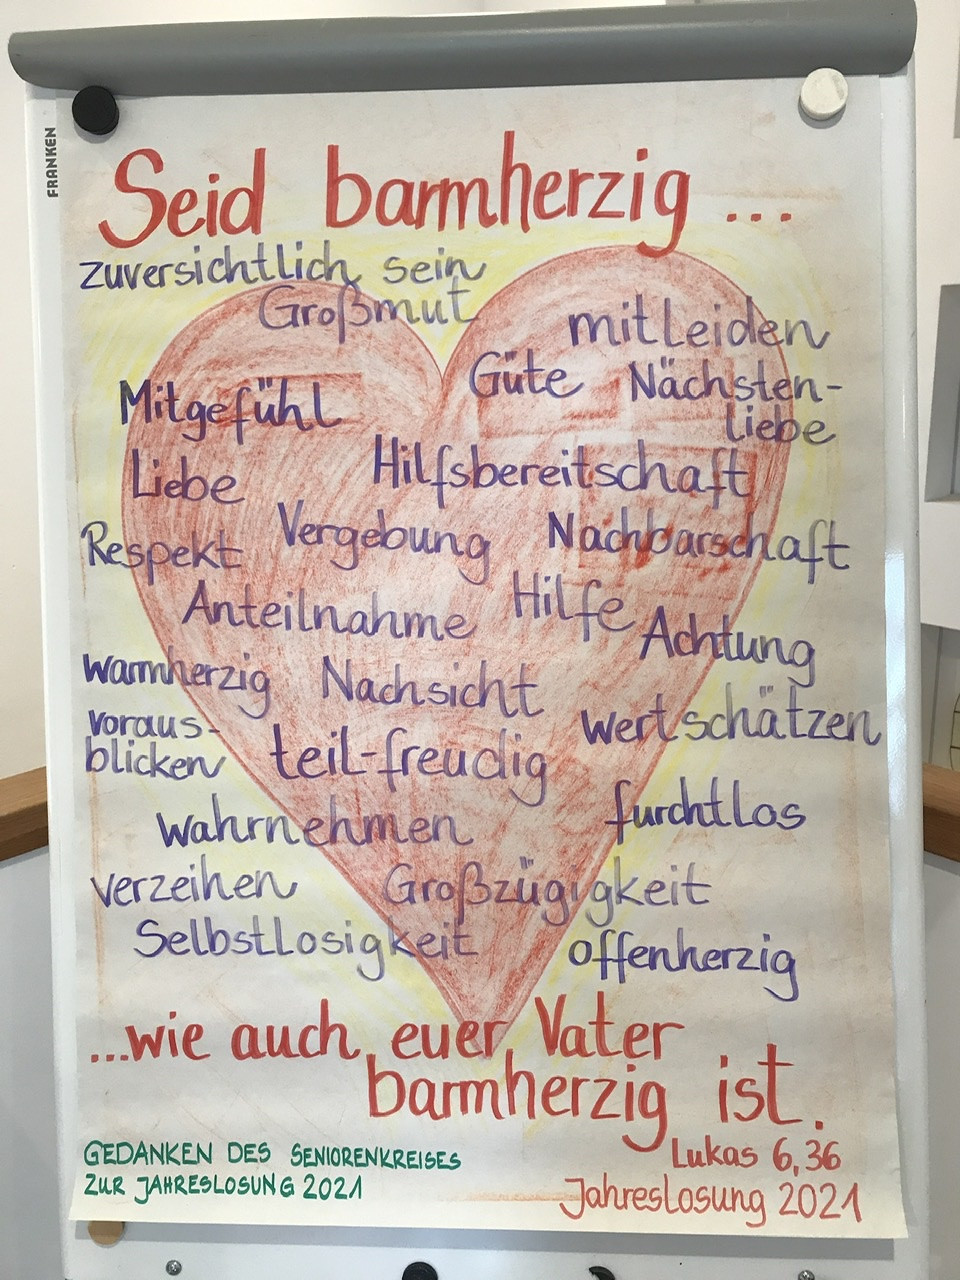 FRANKEN
Seid barmherzig ...
zuversichtlich sein
Großmut
mitleiden
Güte Nächsten-
liebe
Mitgefühl
Liebe
Hilfsbereitschaft
Respekt
Vergebung
Nachbarschaft
Anteilnahme
Hilfe
Achtung
warmherzig
Nachsicht
voraus-
blicken
wertschätzen
teil-freudig
wahrnehmen
furchtlos
verzeihen
Großzügigkeit
Selbstlosigkeit
offenherzig
...wie auch euer Vater
barmherzig ist.
Lukas 6,36
Jahreslosung 2021
GEDANKEN DES SENIORENKREISES
ZUR JAHRESLOSUNG 2021